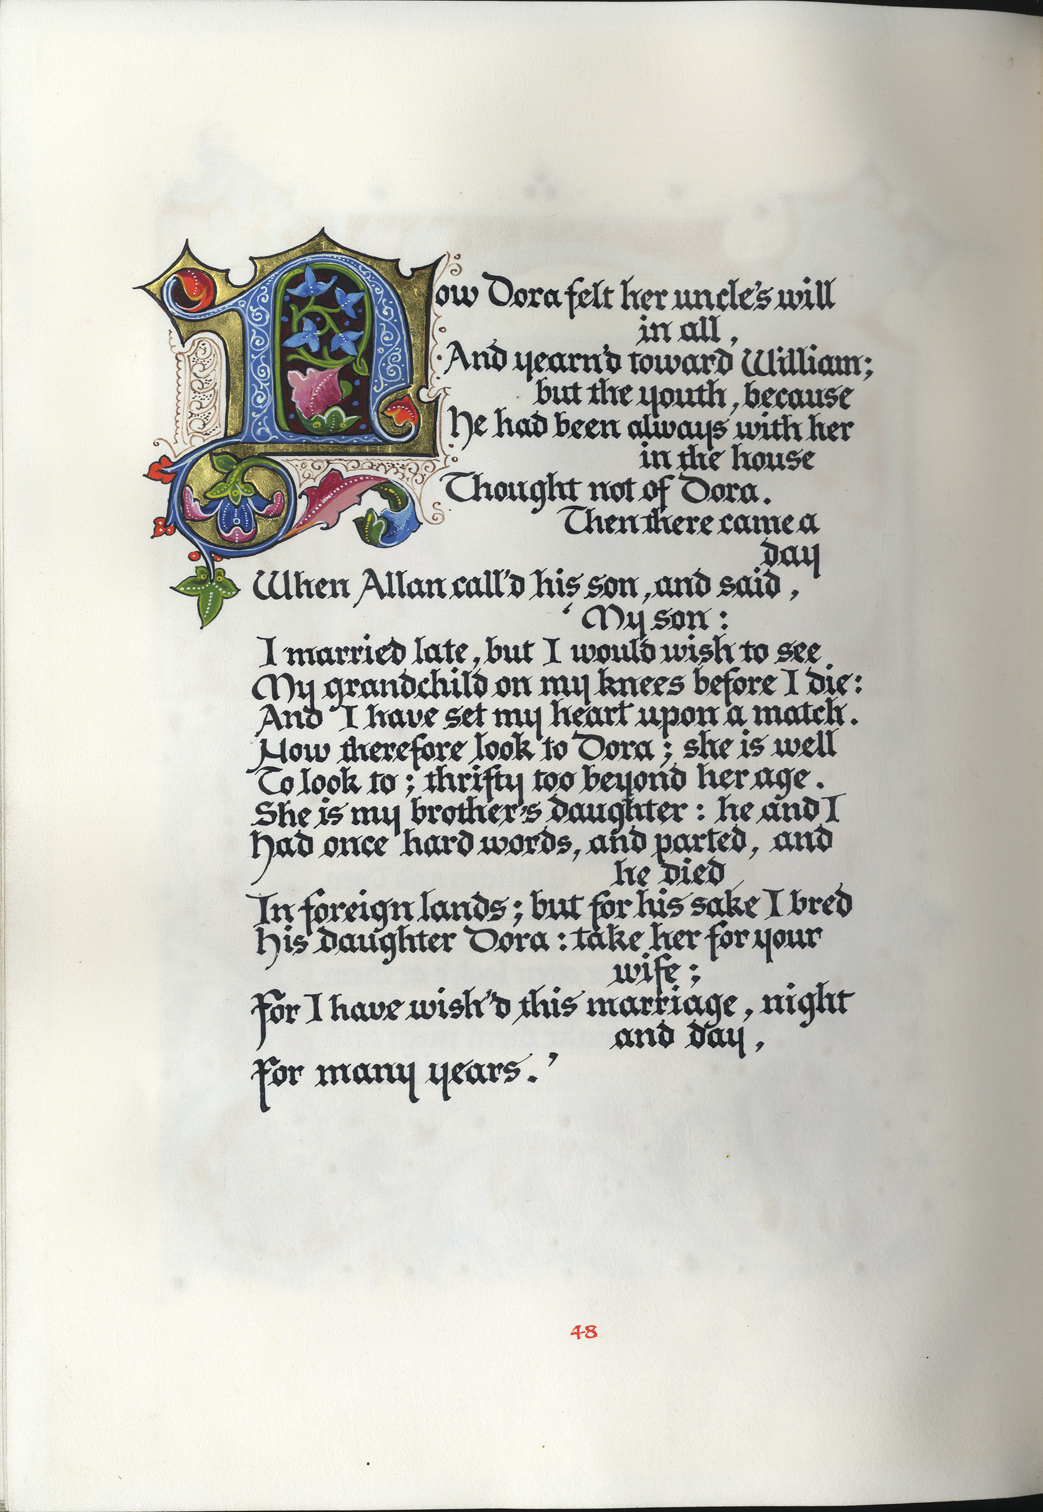 Now Dora felt her uncle's will
in all,
And yearn'd toward William;
but the youth, because
He had been always with her
in the house
Thought not of Dora.
Then there came a
day
When Allan call'd his son, and said,
‘My son:
I married late, but I would wish to see
My grandchild on my knees before I die:
And I have set my heart upon a match.
Now therefore look to Dora; she is well
To look to; thrifty too beyond her age.
She is my brother's daughter: he and I
Had once hard words, and parted, and
he died
In foreign lands; but for his sake I bred
His daughter Dora: take her for your
wife;
For I have wish'd this marriage, night
and day,
For many years.’
48